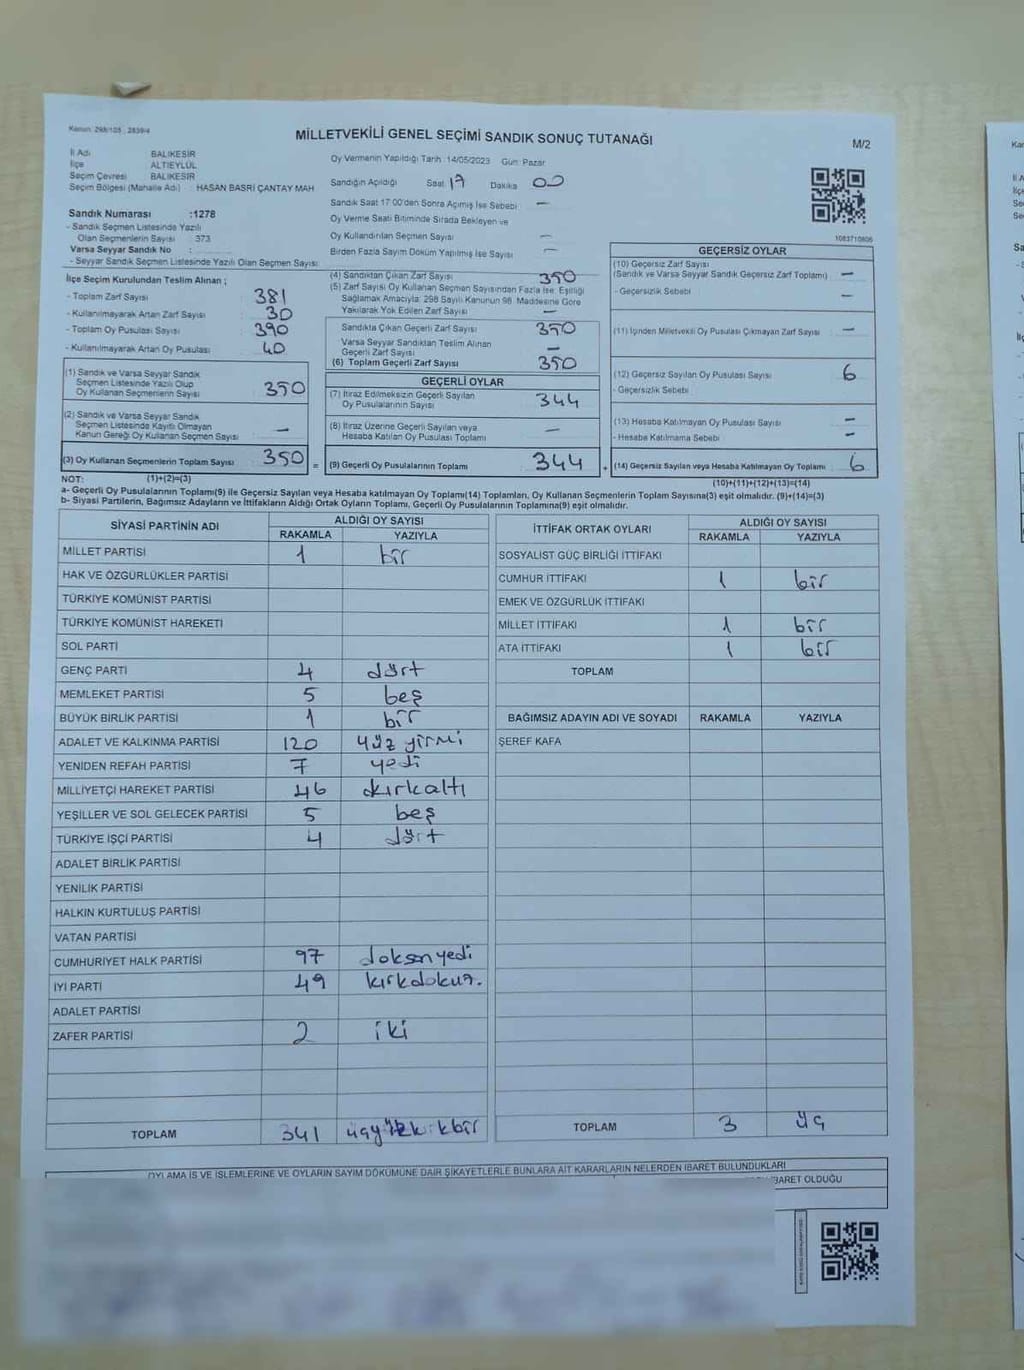 Kanun: 298/105 , 2839/4
MİLLETVEKİLİ GENEL SEÇİMİ SANDIK SONUÇ TUTANAĞI
M/2
İl Adı BALIKESİR
İlçe ALTIEYLÜL
Seçim Çevresi BALIKESİR
Seçim Bölgesi (Mahalle Adı) : HASAN BASRİ ÇANTAY MAH
Sandık Numarası :1278
- Sandık Seçmen Listesinde Yazılı
Olan Seçmenlerin Sayısı : 373
Varsa Seyyar Sandık No :
- Seyyar Sandık Seçmen Listesinde Yazılı Olan Seçmen Sayısı:
Oy Vermenin Yapıldığı Tarih : 14/05/2023 Gün: Pazar
Sandığın Açıldığı Saat 17 Dakika 00
Sandık Saat 17.00'den Sonra Açılmış İse Sebebi —
Oy Verme Saati Bitiminde Sırada Bekleyen ve
Oy Kullandırılan Seçmen Sayısı —
Birden Fazla Sayım Döküm Yapılmış İse Sayısı —
1083710806
İlçe Seçim Kurulundan Teslim Alınan ;
- Toplam Zarf Sayısı 381
- Kullanılmayarak Artan Zarf Sayısı 30
- Toplam Oy Pusulası Sayısı 390
- Kullanılmayarak Artan Oy Pusulası 40
(1) Sandık ve Varsa Seyyar Sandık
Seçmen Listesinde Yazılı Olup
Oy Kullanan Seçmenlerin Sayısı 350
(2) Sandık ve Varsa Seyyar Sandık
Seçmen Listesinde Kayıtlı Olmayan
Kanun Gereği Oy Kullanan Seçmen Sayısı —
(3) Oy Kullanan Seçmenlerin Toplam Sayısı 350 =
(4) Sandıktan Çıkan Zarf Sayısı 350
(5) Zarf Sayısı Oy Kullanan Seçmen Sayısından Fazla İse; Eşitliği
Sağlamak Amacıyla; 298 Sayılı Kanunun 98. Maddesine Göre
Yakılarak Yok Edilen Zarf Sayısı —
Sandıkta Çıkan Geçerli Zarf Sayısı 350
Varsa Seyyar Sandıktan Teslim Alınan
Geçerli Zarf Sayısı —
(6) Toplam Geçerli Zarf Sayısı 350
GEÇERLİ OYLAR
(7) İtiraz Edilmeksizin Geçerli Sayılan
Oy Pusulalarının Sayısı 344
(8) İtiraz Üzerine Geçerli Sayılan veya
Hesaba Katılan Oy Pusulası Toplamı —
(9) Geçerli Oy Pusulalarının Toplamı 344 +
GEÇERSİZ OYLAR
(10) Geçersiz Zarf Sayısı
(Sandık ve Varsa Seyyar Sandık Geçersiz Zarf Toplamı) —
- Geçersizlik Sebebi —
(11) İçinden Milletvekili Oy Pusulası Çıkmayan Zarf Sayısı —
(12) Geçersiz Sayılan Oy Pusulası Sayısı 6
- Geçersizlik Sebebi
(13) Hesaba Katılmayan Oy Pusulası Sayısı —
- Hesaba Katılmama Sebebi —
(14) Geçersiz Sayılan veya Hesaba Katılmayan Oy Toplamı 6
NOT: (1)+(2)=(3) (10)+(11)+(12)+(13)=(14)
a- Geçerli Oy Pusulalarının Toplamı(9) ile Geçersiz Sayılan veya Hesaba katılmayan Oy Toplamı(14) Toplamları, Oy Kullanan Seçmenlerin Toplam Sayısına(3) eşit olmalıdır. (9)+(14)=(3)
b- Siyasi Partilerin, Bağımsız Adayların ve İttifakların Aldığı Ortak Oyların Toplamı, Geçerli Oy Pusulalarının Toplamına(9) eşit olmalıdır.
SİYASİ PARTİNİN ADI ALDIĞI OY SAYISI
RAKAMLA YAZIYLA
MİLLET PARTİSİ 1 bir
HAK VE ÖZGÜRLÜKLER PARTİSİ
TÜRKİYE KOMÜNİST PARTİSİ
TÜRKİYE KOMÜNİST HAREKETİ
SOL PARTİ
GENÇ PARTİ 4 dört
MEMLEKET PARTİSİ 5 beş
BÜYÜK BİRLİK PARTİSİ 1 bir
ADALET VE KALKINMA PARTİSİ 120 yüz yirmi
YENİDEN REFAH PARTİSİ 7 yedi
MİLLİYETÇİ HAREKET PARTİSİ 46 kırkaltı
YEŞİLLER VE SOL GELECEK PARTİSİ 5 beş
TÜRKİYE İŞÇİ PARTİSİ 4 dört
ADALET BİRLİK PARTİSİ
YENİLİK PARTİSİ
HALKIN KURTULUŞ PARTİSİ
VATAN PARTİSİ
CUMHURİYET HALK PARTİSİ 97 doksanyedi
İYİ PARTİ 49 kırkdokuz.
ADALET PARTİSİ
ZAFER PARTİSİ 2 iki
TOPLAM 341
İTTİFAK ORTAK OYLARI ALDIĞI OY SAYISI
RAKAMLA YAZIYLA
SOSYALİST GÜÇ BİRLİĞİ İTTİFAKI
CUMHUR İTTİFAKI 1 bir
EMEK VE ÖZGÜRLÜK İTTİFAKI
MİLLET İTTİFAKI 1 bir
ATA İTTİFAKI 1 bir
TOPLAM
BAĞIMSIZ ADAYIN ADI VE SOYADI RAKAMLA YAZIYLA
ŞEREF KAFA
TOPLAM 3 üç
OYLAMA İŞ VE İŞLEMLERİNE VE OYLARIN SAYIM DÖKÜMÜNE DAİR ŞİKAYETLERLE BUNLARA AİT KARARLARIN NELERDEN İBARET BULUNDUKLARI
İBARET OLDUĞU